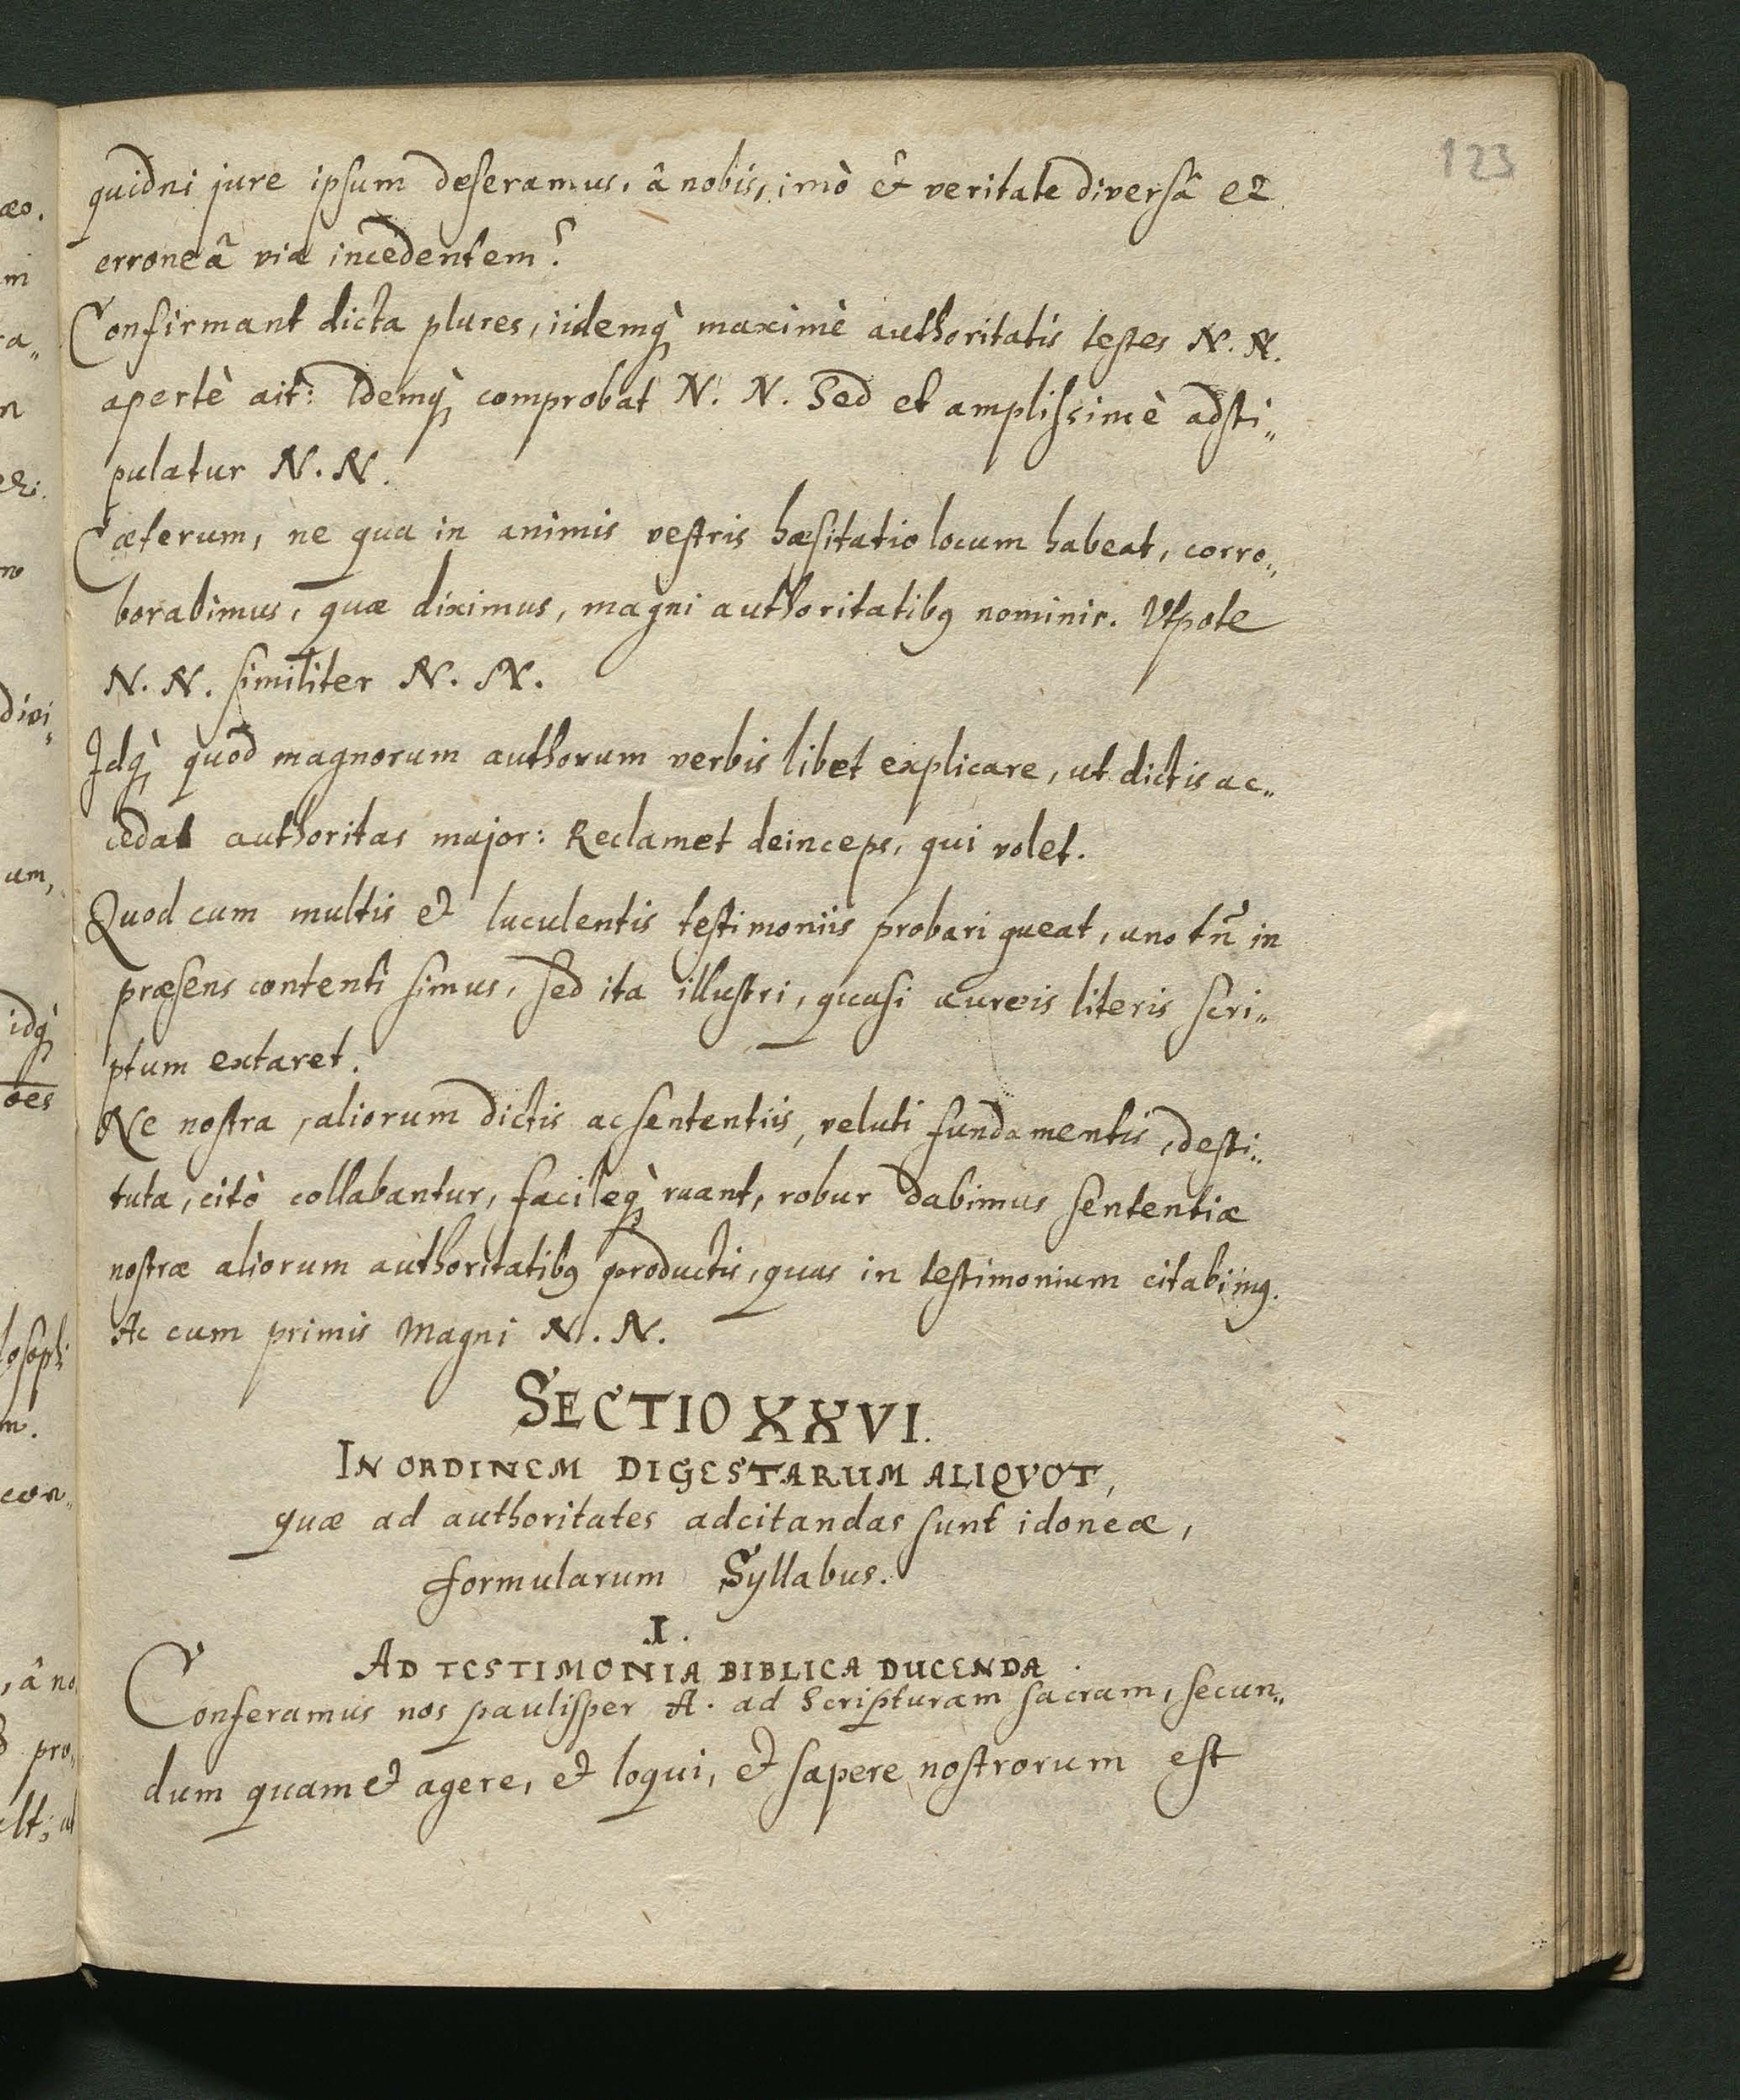 123
quidni jure ipsum deseramus, â nobis, imò & veritate diversâ et
erroneâ via incedentem?
Confirmant dicta plures, iidemq̀ maximè authoritatis testes N. N.
apertè ait: Idemq̀ comprobat N. N. Sed et amplissimè adsti„
pulatur N. N.
Cæterum, ne qua in animis vestris hæsitatio locum habeat, corro„
borabimus, quæ diximus, magni authoritatibꝰ nominis. Utpote
N. N. similiter N. N.
Idq̀ quod magnorum authorum verbis libet explicare, ut dictis ac„
cedat authoritas major: Reclamet deinceps, qui volet.
Quod cum multis et luculentis testimoniis probari queat, uno tñ in
præsens contenti simus, sed ita illustri, quasi aureis literis scri„
ptum extaret.
Ne nostra, aliorum dictis ac sententiis, veluti fundamentis, desti„
tuta, citò collabantur, facileq̀ ruant, robur dabimus sententiæ
nostræ aliorum authoritatibꝰ productis, quas in testimonium citabimꝰ.
Ac cum primis Magni N. N.
SECTIO XXVI.
IN ORDINEM DIGESTARUM ALIQVOT,
quæ ad authoritates adcitandas sunt idoneæ,
formularum Syllabus.
I.
AD TESTIMONIA BIBLICA DUCENDA.
Conferamus nos paulisper A. ad Scripturam sacram, secun„
dum quam et agere, et loqui, et sapere nostrorum est